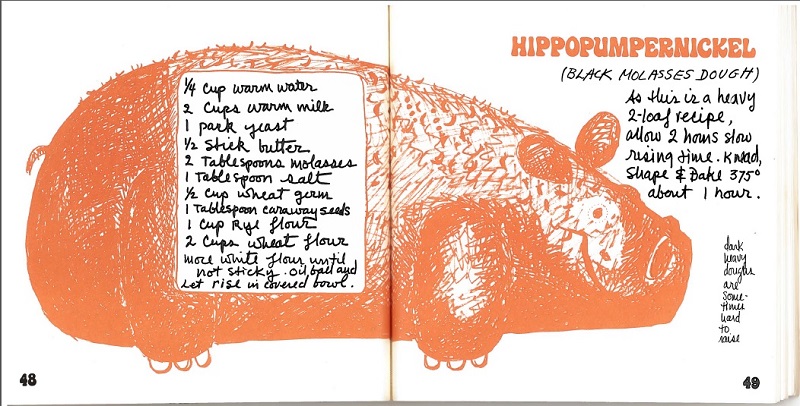 ¼ Cup warm water
2 Cups warm milk
1 pack yeast
½ Stick butter
2 Tablespoons molasses
1 Tablespoon salt
½ Cup wheat germ
1 Tablespoon caraway seeds
1 Cup Rye flour
2 Cups wheat flour
more white flour until
not sticky. Oil ball and
let rise in covered bowl.
48
HIPPOPUMPERNICKEL
(BLACK MOLASSES DOUGH)
As this is a heavy
2-loaf recipe,
allow 2 hours slow
rising time. Knead,
Shape & Bake 375°
about 1 hour.
dark
heavy
doughs
are
some-
times
hard
to
raise
49